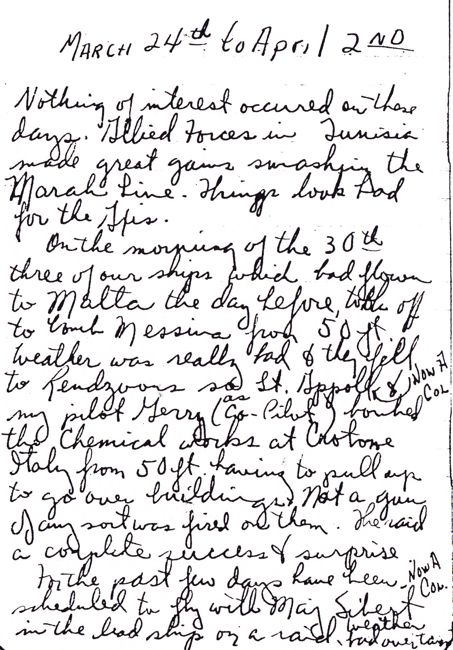 MARCH 24th to April 2ND
Nothing of interest occurred on these
days. Allied Forces in Tunisia
made great gains smashing the
Marah Line. Things look bad
for the Jjis.
On the morning of the 30th
three of our ships which had flown
to Malta the day before, took off
to bomb Messina from 50 ft
Weather was really bad & they fell
to Rendzvous so Lt. Appold &
Now A
Col
my pilot Gerry (as Co-Pilot) bombed
the Chemical works at Crotone
Italy from 50 ft. having to pull up
to go over buildings. Not a gun
of any sort was fired on them. The raid
a complete success & surprise
In the past few days have been
Now A
Col.
scheduled to fly with Maj Sibert
in the lead ship on a raid. weather bad overcast